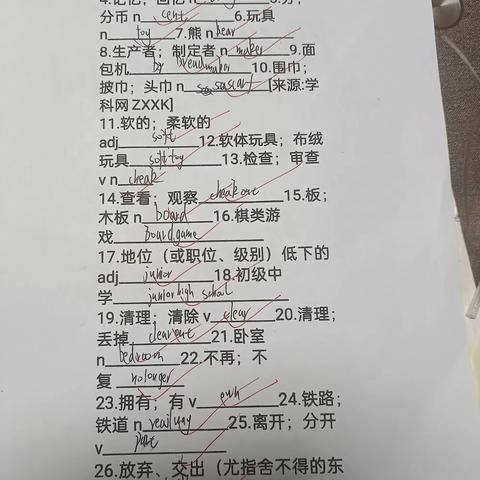 4.记忆；回忆 n
分币 n cent 6.玩具
n toy 7.熊 n bear
8.生产者；制定者 n maker 9.面
包机 bread maker 10.围巾；
披巾；头巾 n [来源:学
科网 ZXXK]
11.软的；柔软的
adj soft 12.软体玩具；布绒
玩具 soft toy 13.检查；审查
v n cheak
14.查看；观察 cheak out 15.板；
木板 n board 16.棋类游
戏 Board game
17.地位（或职位、级别）低下的
adj junior 18.初级中
学 junior high school
19.清理；清除 v clear 20.清理；
丢掉 clear out 21.卧室
n bedroom 22.不再；不
复 no longer
23.拥有；有 v 24.铁路；
铁道 n railway 25.离开；分开
v
26.放弃、交出（尤指舍不得的东